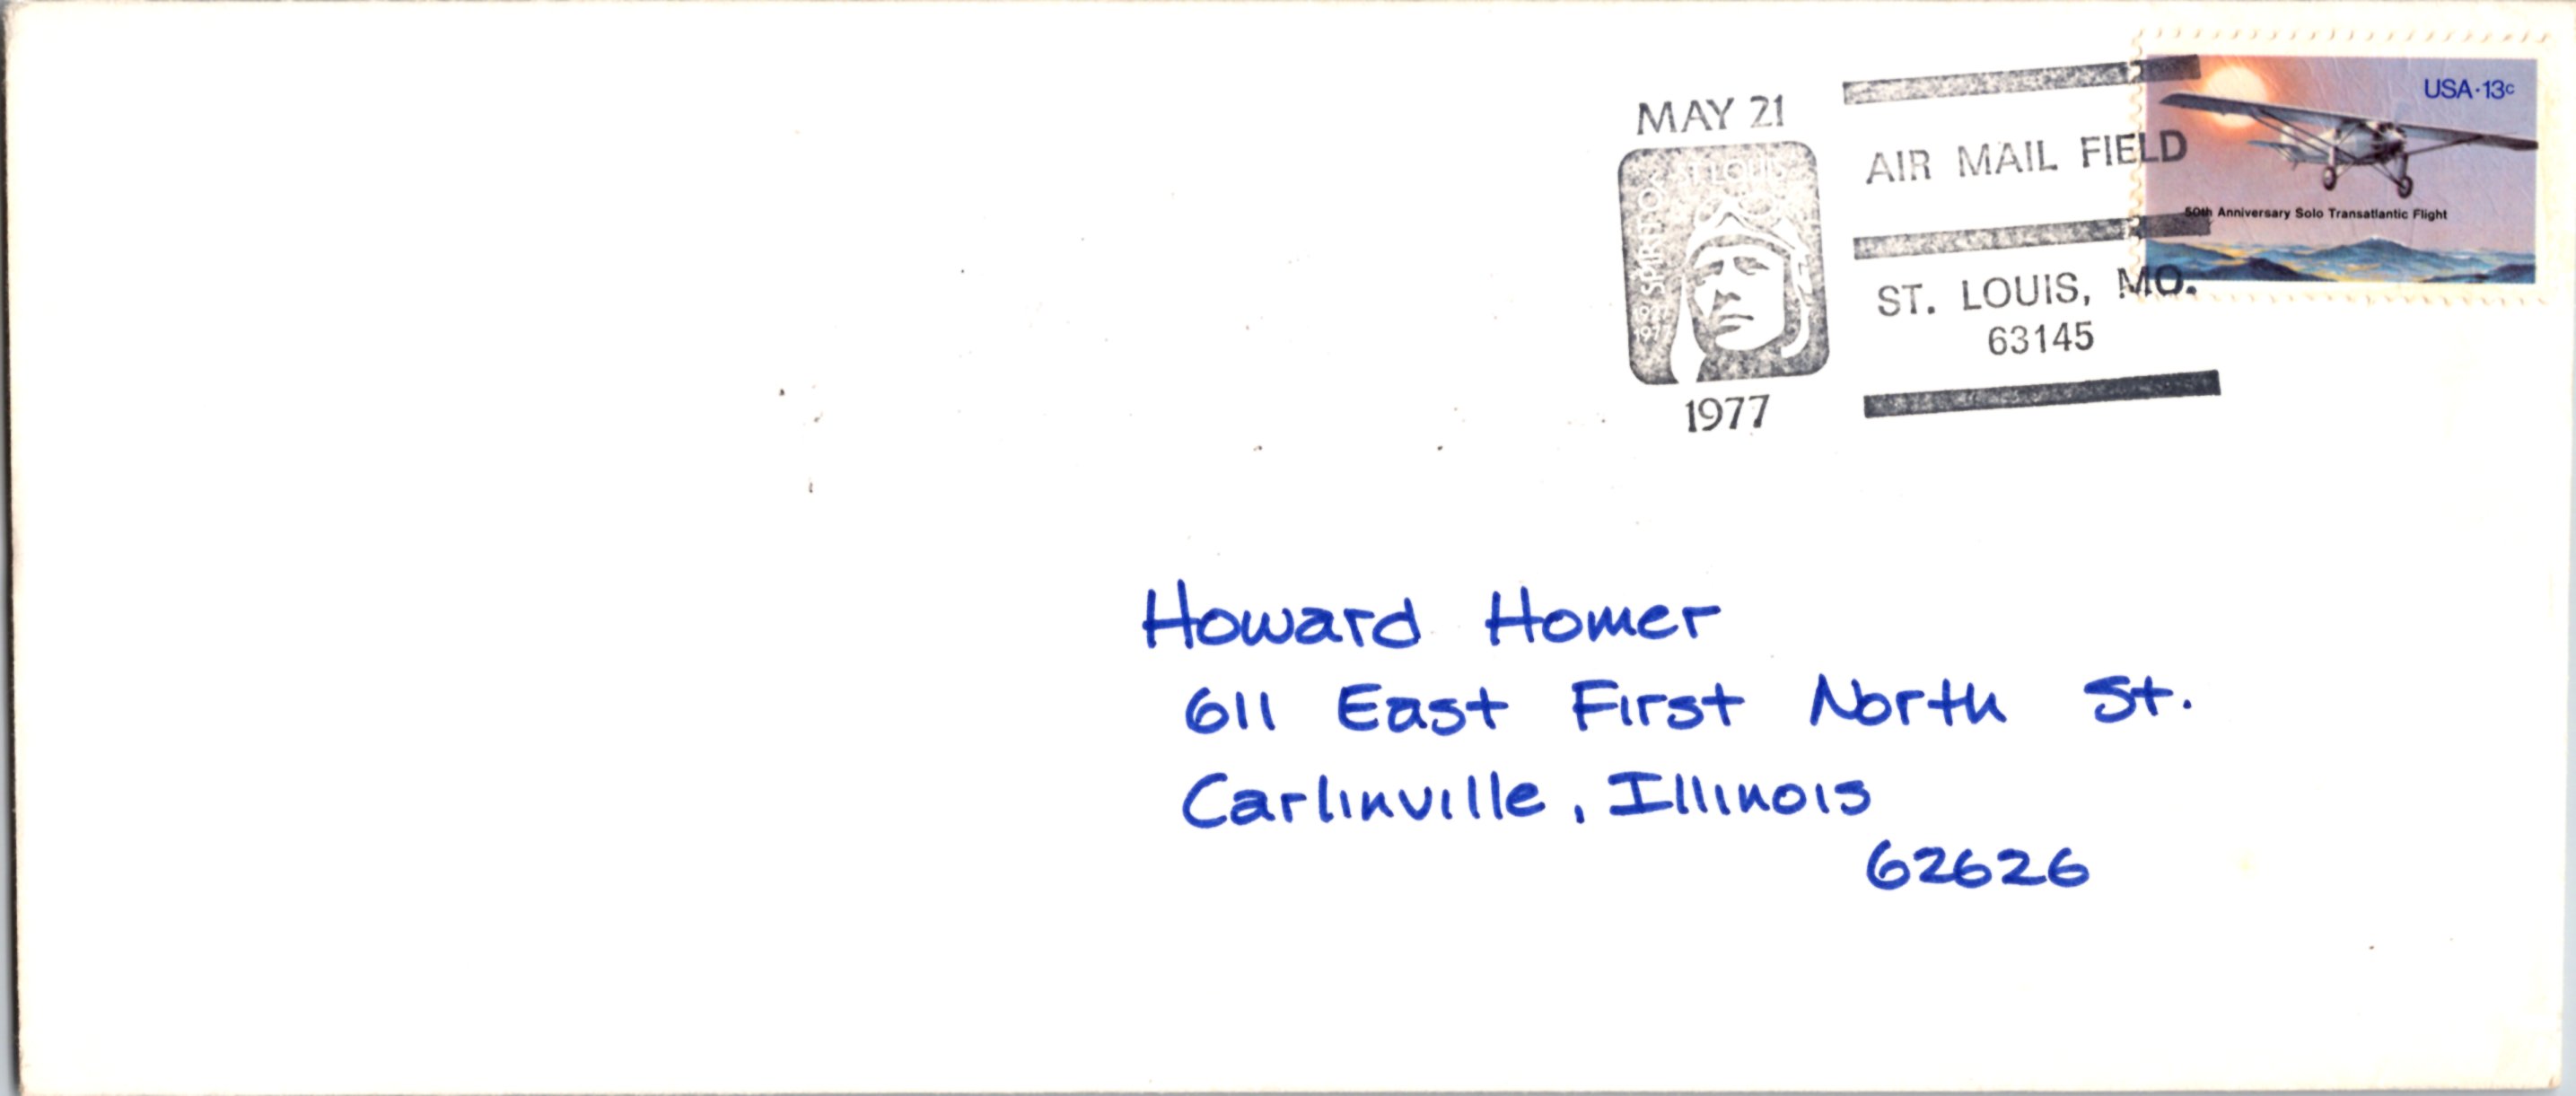 MAY 21
SPIRIT OF ST. LOUIS
1977
AIR MAIL FIELD
ST. LOUIS, MO.
63145
USA·13c
50th Anniversary Solo Transatlantic Flight
Howard Homer
611 East First North St.
Carlinville, Illinois
62626